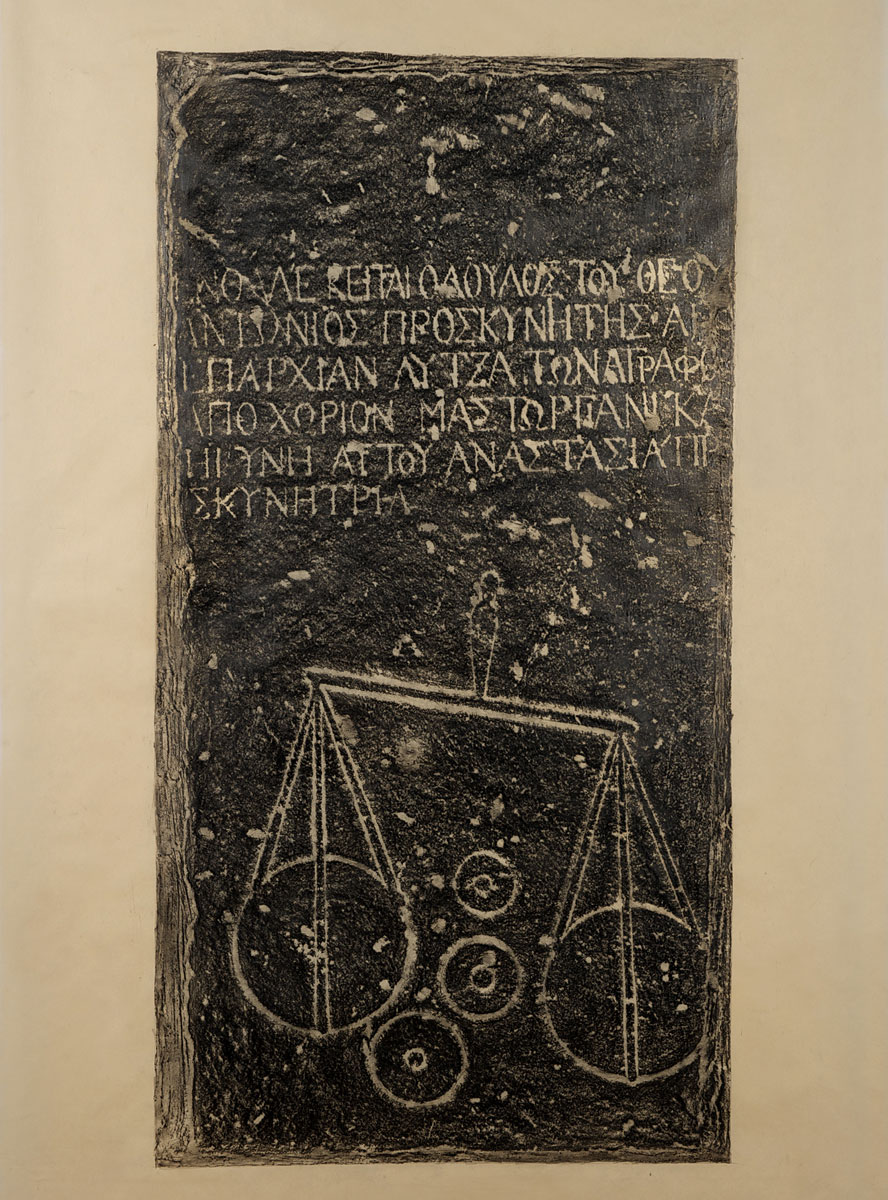 ΕΝΘΑΔΕ ΚΕΙΤΑΙ Ο ΔΟΥΛΟΣ ΤΟΥ ΘΕΟΥ
ΑΝΤΩΝΙΟΣ ΠΡΟΣΚΥΝΗΤΗΣ ΑΠΟ
ΕΠΑΡΧΙΑΝ ΛΥΤΖΑ ΤΩΝ ΑΓΡΑΦΩ
ΑΠΟ ΧΩΡΙΟΝ ΚΑ
Η ΓΥΝΗ ΑΥΤΟΥ ΑΝΑΣΤΑΣΙΑ ΠΡ
ΣΚΥΝΗΤΡΙΑ